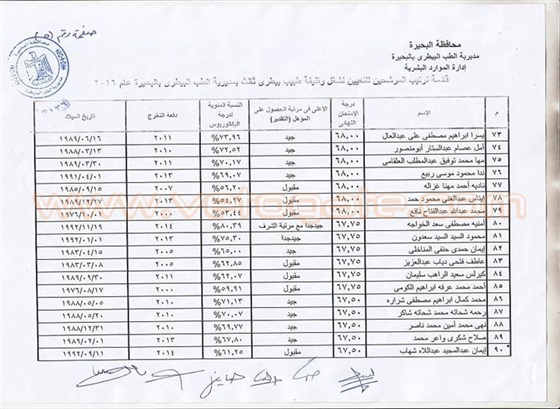 صفحة رقم (٥)
محافظة البحيرة
مديرية الطب البيطرى بالبحيرة
إدارة الموارد البشرية
قائمة ترتيب المرشحين للتعيين لشغل وظيفة طبيب بيطرى ثالث بمديرية الطب البيطرى بالبحيرة عام ٢٠١٦
م الإسم درجة الإمتحان النهائى الاعلى فى مرتبة الحصول على المؤهل (التقدير) النسبة المئوية لدرجة البكالوريوس دفعة التخرج تاريخ الميلاد
٧٣ يسرا ابراهيم مصطفى على عبدالعال ٦٨,٠٠ جيد ٧٣,٩٦% ٢٠١١ ١٩٨٩/٠٦/١٦
٧٤ أمل عصام عبدالستار أبومنصور ٦٨,٠٠ جيد ٧٢,٥٢% ٢٠١٠ ١٩٨٨/٠٣/١٣
٧٥ مها محمد توفيق عبدالمطلب العلقامى ٦٨,٠٠ جيد ٧٠,١٧% ٢٠١١ ١٩٨٩/٠٣/٣٠
٧٦ ندا محمود موسى ربيع ٦٨,٠٠ جيد ٦٩,٠٧% ٢٠١٣ ١٩٩١/٠٤/٠١
٧٧ ناديه أحمد مهنا غزاله ٦٨,٠٠ مقبول ٥٦,٢٠% ٢٠٠٧ ١٩٨٥/٠٩/١٥
٧٨ إيناس عبدالغنى محمود حمد ٦٨,٠٠ مقبول ٢٠١٣ ١٩٨٩/١٢/١٧
٧٩ محمد عبدالله عبدالفتاح نافع ٦٨,٠٠ مقبول ٥٣,٤٤% ٢٠٠٠ ١٩٧٦/١٠/٠١
٨٠ أمنيه مصطفى سعد الخواجه ٦٧,٧٥ جيدجدا مع مرتبة الشرف ٨٠,٣٩% ٢٠١٤ ١٩٩٢/١١/١٩
٨١ محمود السيد السيد سعدون ٦٧,٧٥ جيدجدا ٧٥,٣٠% ٢٠١٣ ١٩٩٢/٠١/٠١
٨٢ إيمان حمدى حنفى المناخلى ٦٧,٧٥ جيد ٦٥,٠٠% ٢٠٠٥ ١٩٨٣/٠٤/١٥
٨٣ عاطف فتحى دياب عبدالعزيز ٦٧,٧٥ مقبول ٦٢,٨٥% ٢٠٠٥ ١٩٨٣/٠٣/٠٨
٨٤ كيرلس سعيد الراهب سليمان ٦٧,٧٥ مقبول ٦٢,٠٧% ٢٠١١ ١٩٨٩/٠٩/٣٠
٨٥ أحمد محمد عرفه ابراهيم الكومى ٦٧,٧٥ مقبول ٥٩,٩١% ٢٠٠٠ ١٩٧٦/٠٨/١٧
٨٦ محمد كمال ابراهيم مصطفى شراره ٦٧,٥٠ جيد ٧١,١٣% ٢٠١٠ ١٩٨٨/٠٥/٠٥
٨٧ رحمه شحاته محمد شحاته شاكر ٦٧,٥٠ جيد ٧٠,٠٧% ٢٠١٠ ١٩٨٨/٠٢/٢٠
٨٨ نهى محمد أمين محمد ناصر ٦٧,٥٠ جيد ٦٩,٧٧% ٢٠١٠ ١٩٨٨/١٢/٣١
٨٩ صلاح شكرى واعر محمد ٦٧,٥٠ جيد ٦٧,٨٠% ٢٠١٣ ١٩٩١/٠٢/٠٤
٩٠ إيمان عبدالمجيد عبداللاه شهاب ٦٧,٥٠ مقبول ٦١,٢٥% ٢٠١٤ ١٩٩٢/٠٩/١١